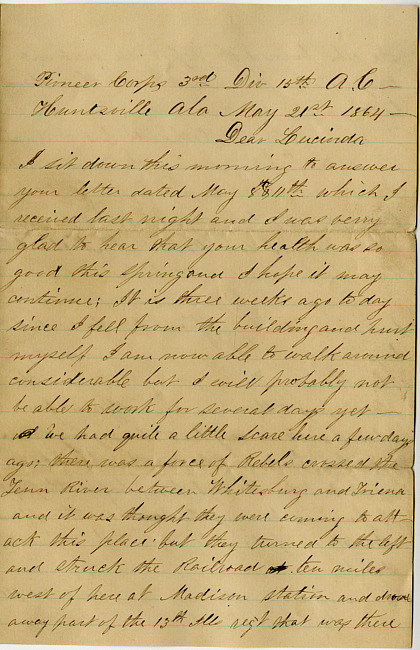 Pioneer Corps 3rd Div 15th A.C —
Huntsville Ala May 21st 1864 —
Dear Lucinda
I sit down this morning to answer
your letter dated May 8th & 11th which I
received last night and I was verry
glad to hear that your health was so
good this Spring and I hope it may
continue; It is three weeks ago to day
since I fell from the building and hurt
myself I am now able to walk around
considerable but I will probably not
be able to work for several days yet
We had quite a little scare here a few days
ago; there was a force of Rebels crossed the
Tenn River between Whitesburg and Triena
and it was thought they were coming to att-
ack this place but they turned to the left
and struck the Railroad ten miles
west of here at Madison station and drove
away part of the 13th Ill regt that was there